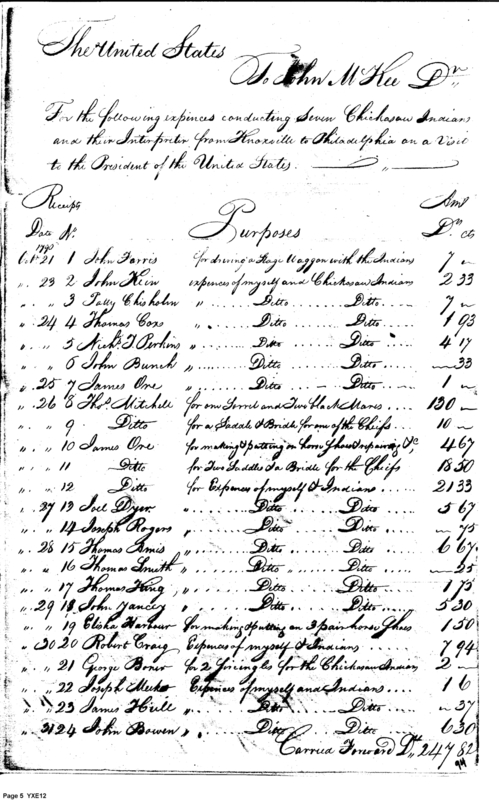 The United States
To John McKee Dr
For the following expences conducting Seven Chickasaw Indians
and their Interpreter from Knoxville to Philadelphia on a Visit
to the President of the United States.
Receipts Amt
Date No. Purposes Drs cts
Octr 21 1 John Farris for driving a Stage Waggon with the Indians 7 "
" 23 2 John Kein expences of myself and Chickasaw Indians 2 33
" " 3 Patty Chisholm " Ditto Ditto 7 "
" 24 4 Thomas Cox " Ditto Ditto 1 93
" " 5 Nichs. T Perkins " Ditto Ditto 4 17
" " 6 John Bunch " Ditto Ditto " 33
" 25 7 James Ore " Ditto Ditto 1 "
" 26 8 Thos. Mitchell for one Sorrel and Two black Mares 130 "
" " 9 Ditto for a Saddle & Bridle for one of the Chiefs 10 "
" " 10 James Ore for making & putting on horse Shoes & repairing &c 4 67
" " 11 Ditto for Two Saddles & a Bridle for the Chiefs 18 50
" " 12 Ditto for Expences of myself & Indians 21 33
" 27 13 Joel Dyer " Ditto Ditto 5 67
" " 14 Joseph Rogers " Ditto Ditto " 75
" 28 15 Thomas Amis " Ditto Ditto 6 67
" " 16 Thomas Smith " Ditto " Ditto " 25
" " 17 Thomas King " Ditto Ditto 1 75
" 29 18 John Yancey " Ditto Ditto 5 30
" " 19 Elisha Harbour for making & putting on 3 pair horse Shoes 1 50
" 30 20 Robert Craig Expences of myself & Indians 7 94
" " 21 George for 2 Sircingles for the Chickasaw Indians 2 "
" " 22 Joseph Meek Expences of myself and Indians 1 6
" " 23 James Hill " Ditto Ditto " 37
" 31 24 John Bowen " Ditto Ditto 6 30
Carried Forward Drs 247 82
94
Page 5 YXE12